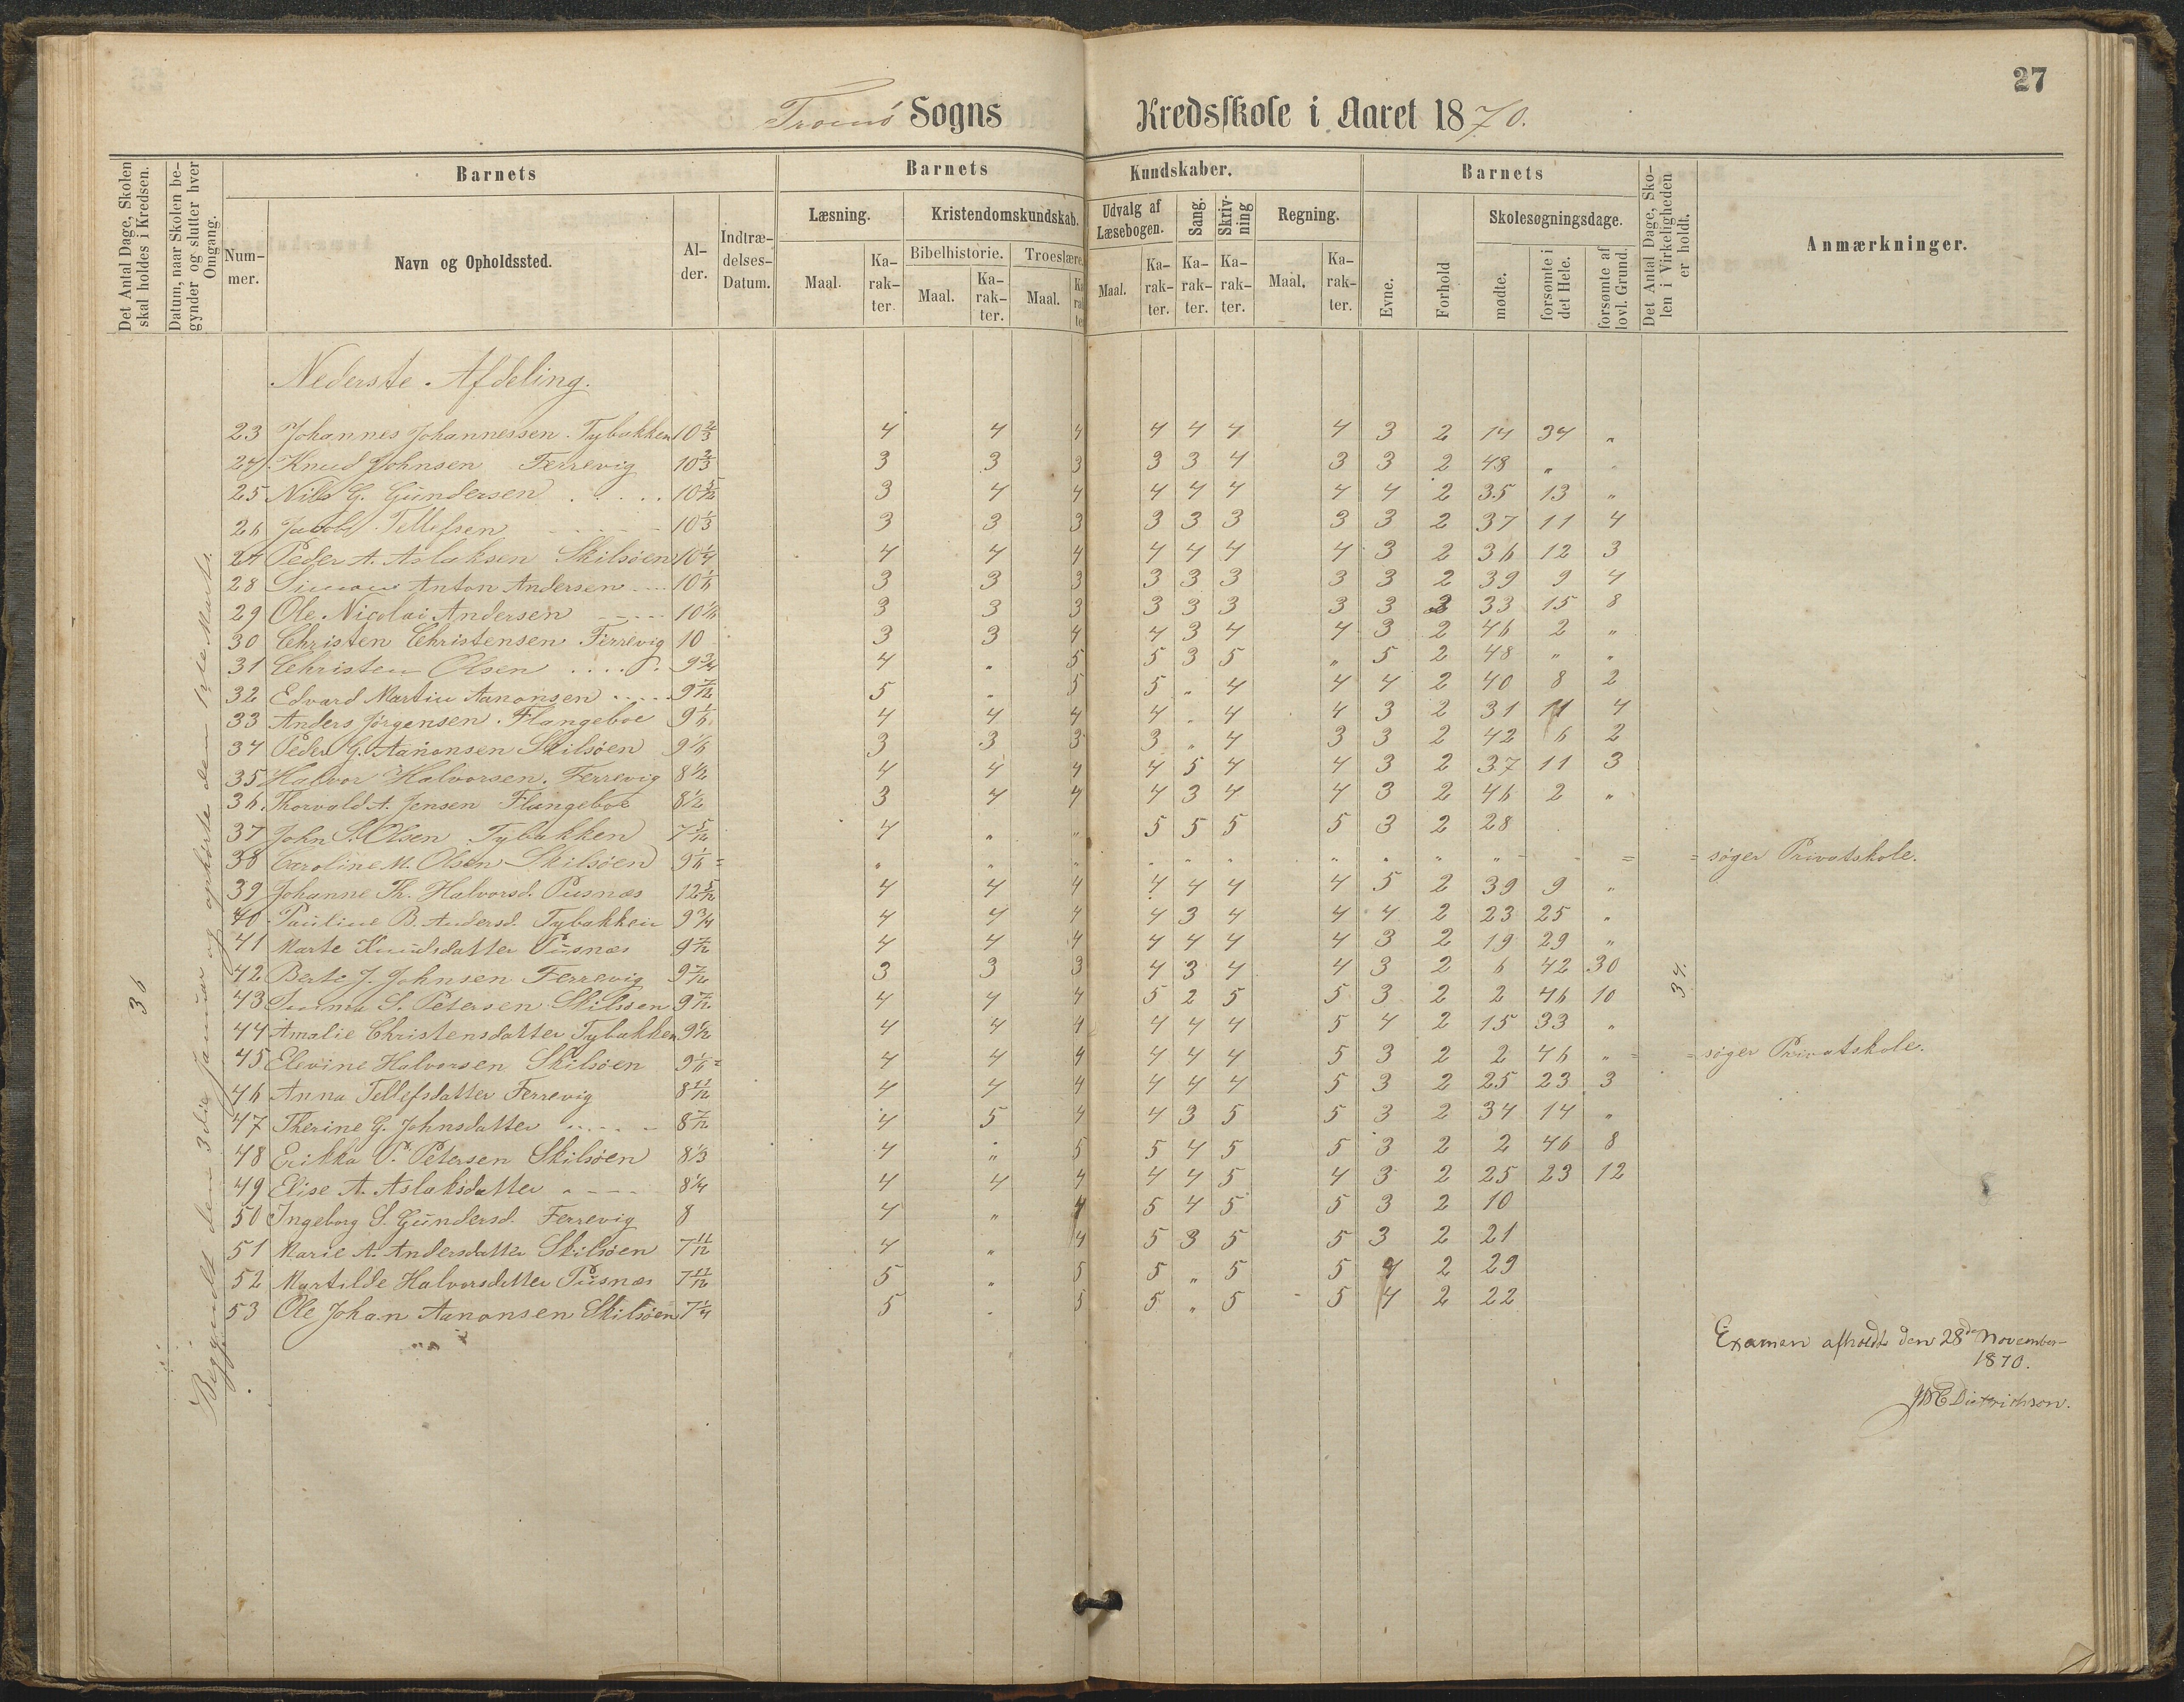 27
Tromø Sogns Kredsskole i Aaret 1870.
Det Antal Dage, Skolen skal holdes i Kredsen.
Datum, naar Skolen begynder og slutter hver Omgang.
Barnets
Nummer.
Navn og Opholdssted.
Alder.
Indtrædelses-Datum.
Barnets Kundskaber.
Læsning.
Maal.
Karakter.
Kristendomskundskab.
Bibelhistorie.
Maal.
Karakter.
Troeslære.
Maal.
Karakter
Udvalg af Læsebogen.
Maal.
Karakter.
Sang.
Karakter.
Skrivning
Karakter.
Regning.
Maal.
Karakter.
Barnets
Evne.
Forhold
Skolesøgningsdage.
mødte.
forsømte i det Hele.
forsømte af lovl. Grund.
Det Antal Dage, Skolen i Virkeligheden er holdt.
Anmærkninger.
Nederste Afdeling.
23 Johannes Johannessen. Tybakken 10 2/3 4 4 4 4 4 4 4 3 2 14 34 "
24 Knud Johnsen Ferrevig 10 2/3 3 3 3 3 3 4 3 3 2 48 " "
25 Nils G. Gundersen . . . . . 10 5/12 3 4 4 4 4 4 4 4 2 35 13 "
26 Jacob Tellefsen - - - - 10 1/3 3 3 3 3 3 3 3 3 2 37 11 4
27 Peder A. Aslaksen Skilsøen 10 1/4 4 4 4 4 4 4 4 3 2 36 12 3
28 Simon Anton Andersen - - - 10 1/6 3 3 3 3 3 3 3 3 2 39 9 4
29 Ole Nicolai Andersen - - - - 10 1/6 3 3 3 3 3 3 3 3 2 33 15 8
30 Christen Christensen Ferrevig 10 3 3 4 4 3 4 4 3 2 46 2 "
31 Christen Olsen . . . . . 9 3/4 4 " 5 5 3 5 " 5 2 48 " "
32 Edvard Martin Aanonsen . . . . . 9 7/12 5 " 5 5 " 4 4 4 2 40 8 2
33 Anders Jörgensen. Flangeboe 9 1/6 4 4 4 4 " 4 4 3 2 31 11 4
34 Peder G. Aanonsen Skilsøen 9 1/6 3 3 3 3 " 4 3 3 2 42 6 2
35 Halvor Halvorsen. Ferrevig 8 1/2 4 4 4 4 5 4 4 3 2 37 11 3
36 Thorvald A. Jensen Flangeboe 8 1/2 3 4 4 4 3 4 4 3 2 46 2 "
37 John S. Olsen Tybakken 7 5/12 4 " " 5 5 5 5 3 2 28
38 Caroline M. Olsen Skilsøen 9 1/6 = " " " " " " " " " " = = søger Privatskole.
39 Johanne Th. Halvorsd. Pusnæs 12 5/12 4 4 4 4 4 4 4 5 2 39 9 "
40 Pauline B. Andersd. Tybakken 9 3/4 4 4 4 4 3 4 4 4 2 23 25 "
41 Marte Knudsdatter Pusnæs 9 7/12 4 4 4 4 4 4 4 3 2 19 29 "
42 Berte J. Johnsen Ferrevig 9 7/12 3 3 3 4 3 4 4 3 2 6 42 30
43 S. Petersen Skilsøen 9 7/12 4 4 4 5 2 5 5 3 2 2 46 10
44 Amalie Christensdatter Tybakken 9 1/2 4 4 4 4 4 4 5 4 2 15 33 "
45 Elevine Halvorsen Skilsøen 9 1/6 = 4 4 4 4 4 4 5 3 2 2 46 " = = søger Privatskole.
46 Anna Tellefsdatter Ferrevig 8 11/12 4 4 4 4 4 4 5 3 2 25 23 3
47 Therine G. Johnsdatter . . . . - 8 7/12 4 5 4 4 3 5 5 3 2 34 14 "
48 Erikka P. Petersen Skilsøen 8 1/3 4 " 5 5 4 5 5 3 2 2 46 8
49 Elise A. Aslaksdatter - - - - 8 1/4 4 4 4 4 4 5 4 3 2 25 23 12
50 Ingeborg S. Gundersd. Ferrevig 8 4 " 4 5 4 5 5 3 2 10
51 Marie A. Andersdatter Skilsøen 7 11/12 4 " 4 5 3 5 5 3 2 21
52 Martilde Halvorsdatter Pusnæs 7 11/12 5 " 5 5 " 5 5 4 2 29
53 Ole Johan Aanonsen Skilsøen 7 1/4 5 " 5 5 " 5 5 4 2 22
36
Begyndt den 3die Januar og ophørte den Marts.
34.
Examen afholdt den 28de November
1870.
Dietrichson.